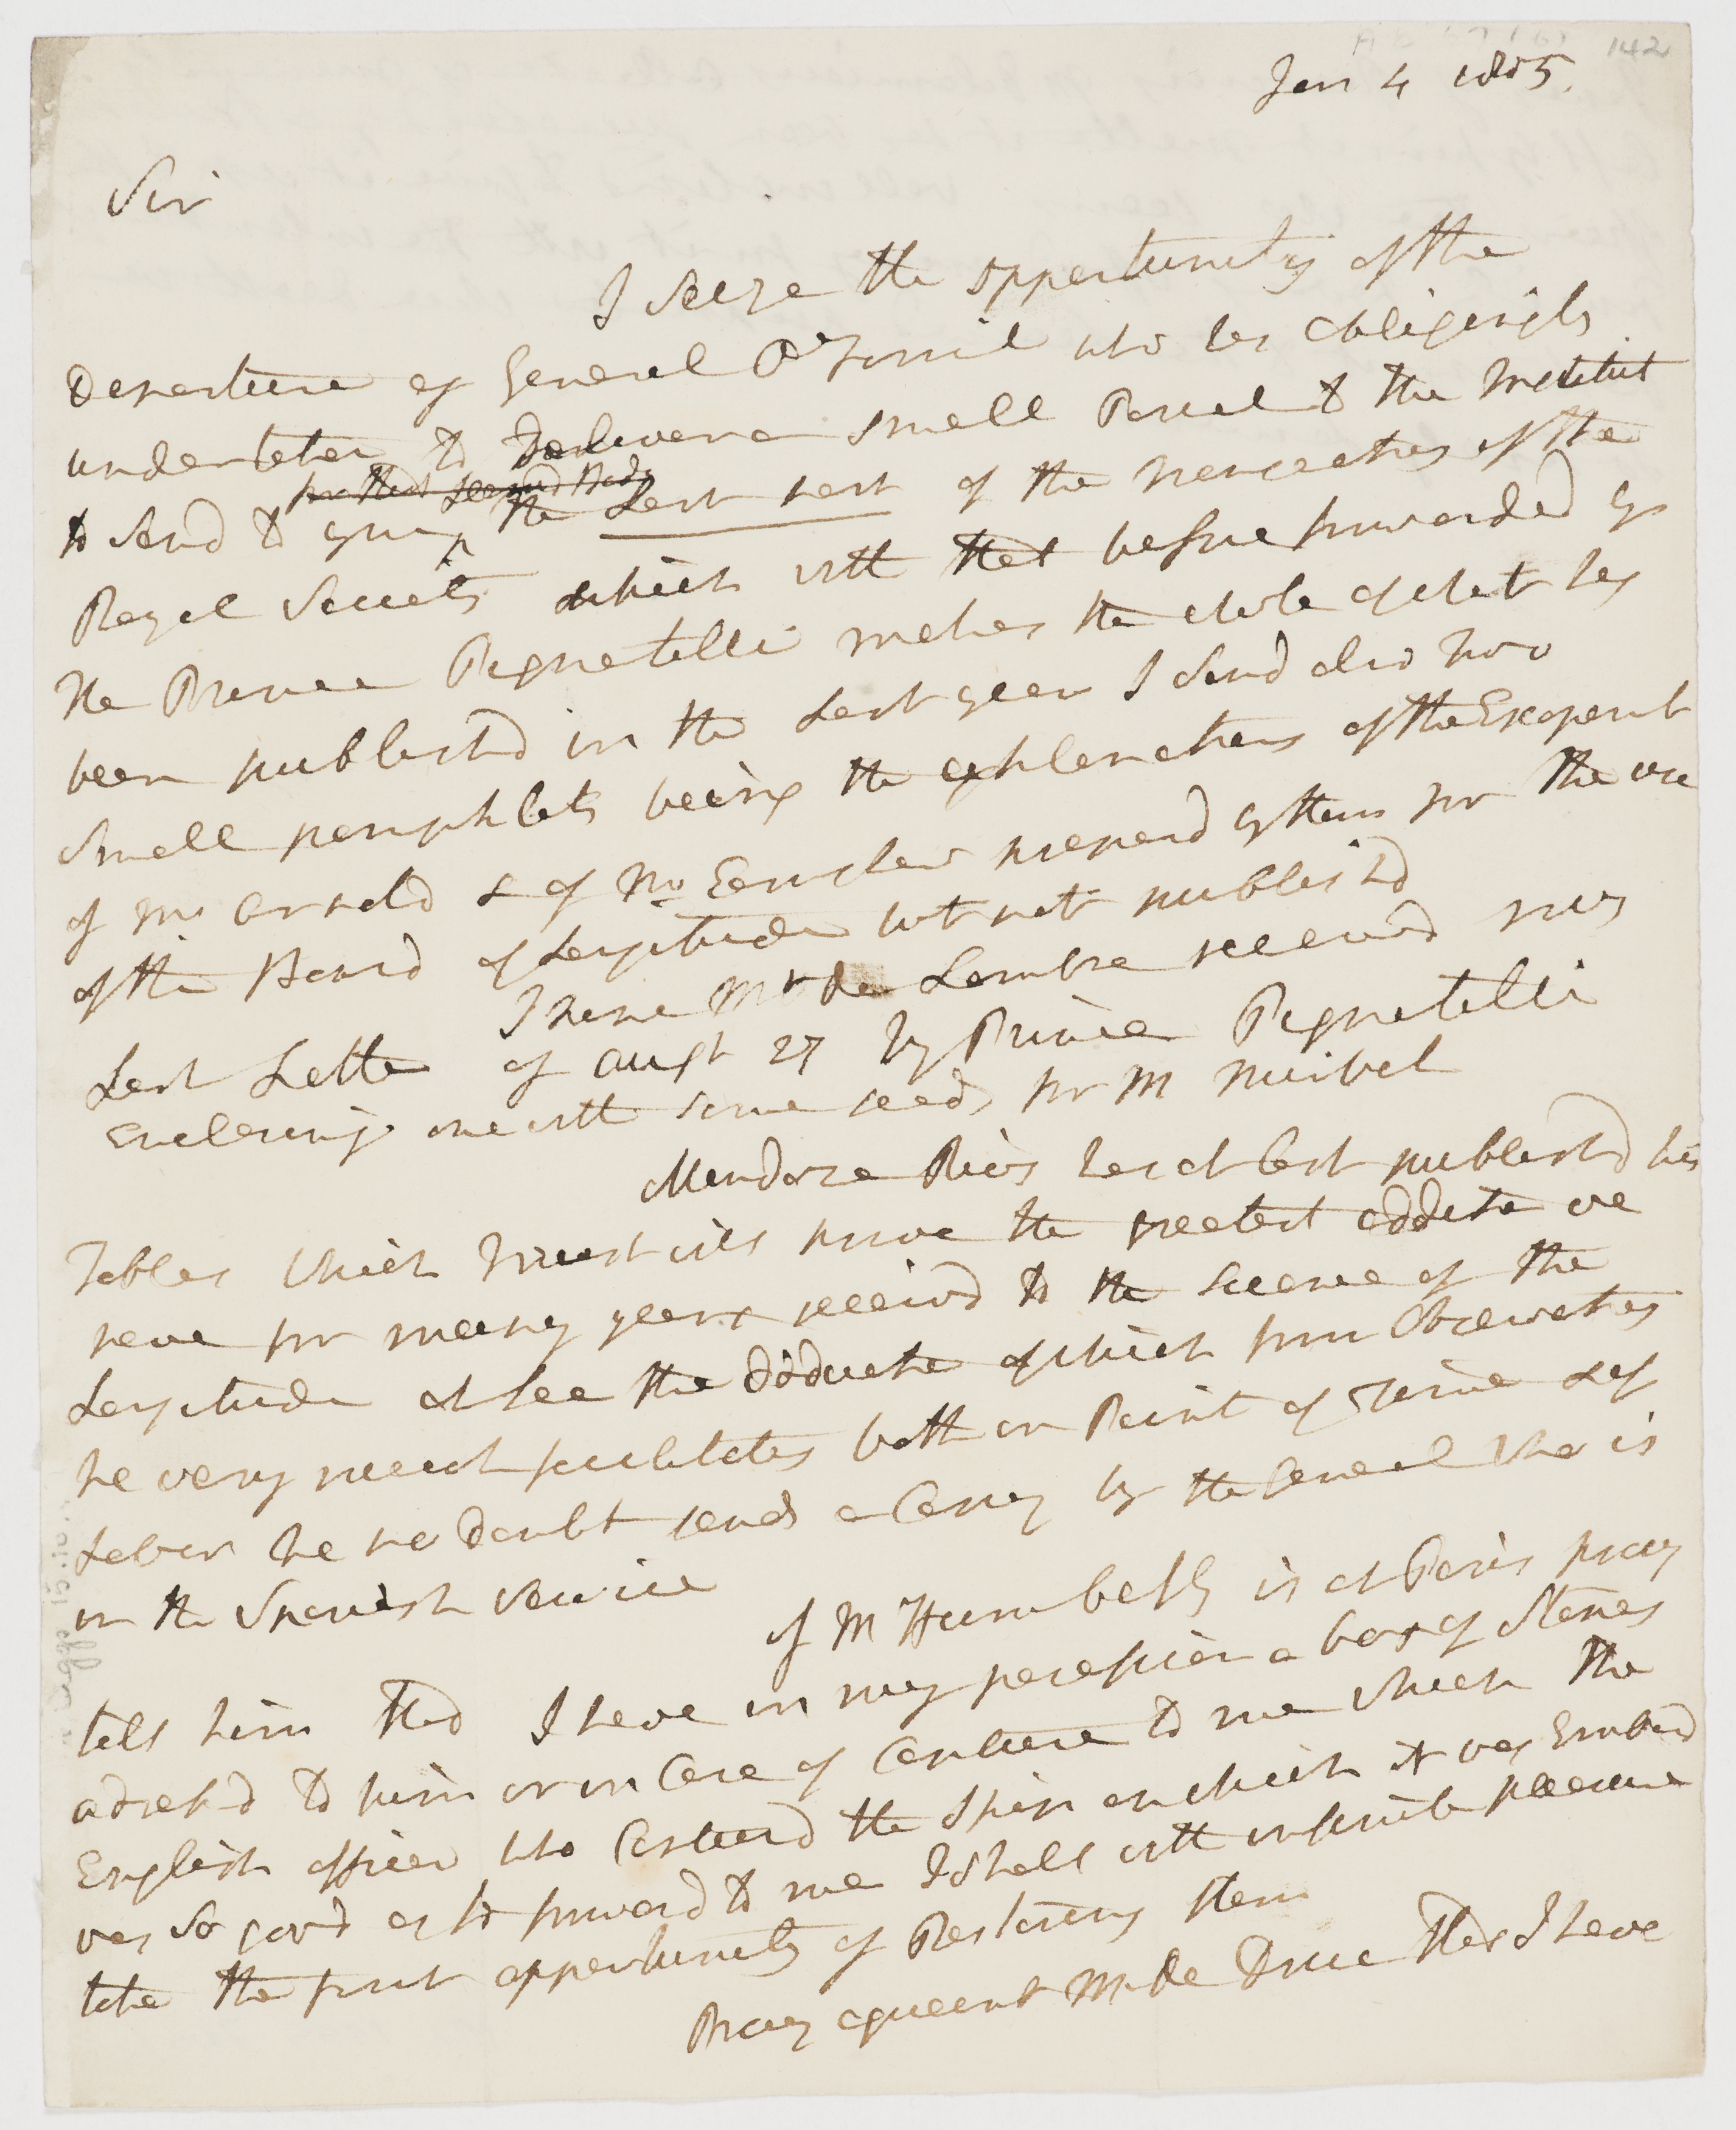 142
Jan 4 1805.
Sir
I Seize the opportunity of the
Departure of General O'Farril who has obligingly
undertaken to Deliver a small Parcel to the Institut
for that Learned Body
to Send to you the Last part of the transactions of the
Royal Society which with that before forwarded by
the Prince Pignatelli makes the whole of what has
been publishd in the Last year I Send also two
Small pamphlets being the explanations of the Escapemt
of Mr Arnold & of Mr Earnshaw prepard by them for the use
of the Board of Longitude but not publishd
I hope Mr De Lambre receivd my
Last Letter of Augst 27 by Prince Pignatelli
Enclosing one with some seeds for M Mirbel
Mendoza Rios has at last publishd his
Tables which I trust will prove the greatest addition we
have for many years receivd to the science of the
Longitude at Sea the deduction of which from Observations
he very much facilitates both in Point of Time & of
Labor he no doubt sends a Copy by the General who is
in the Spanish Service
If M Humboldt is at Paris pray
tell him that I have in my possession a box of Stones
adressd to him or in Case of Capture to me which the
English officer who Capturd the Ship on which it was Embarkd
was so good as to forward to me I shall with infinite pleasure
take the first opportunity of Restoring them
Pray acquaint M De Drée that I have